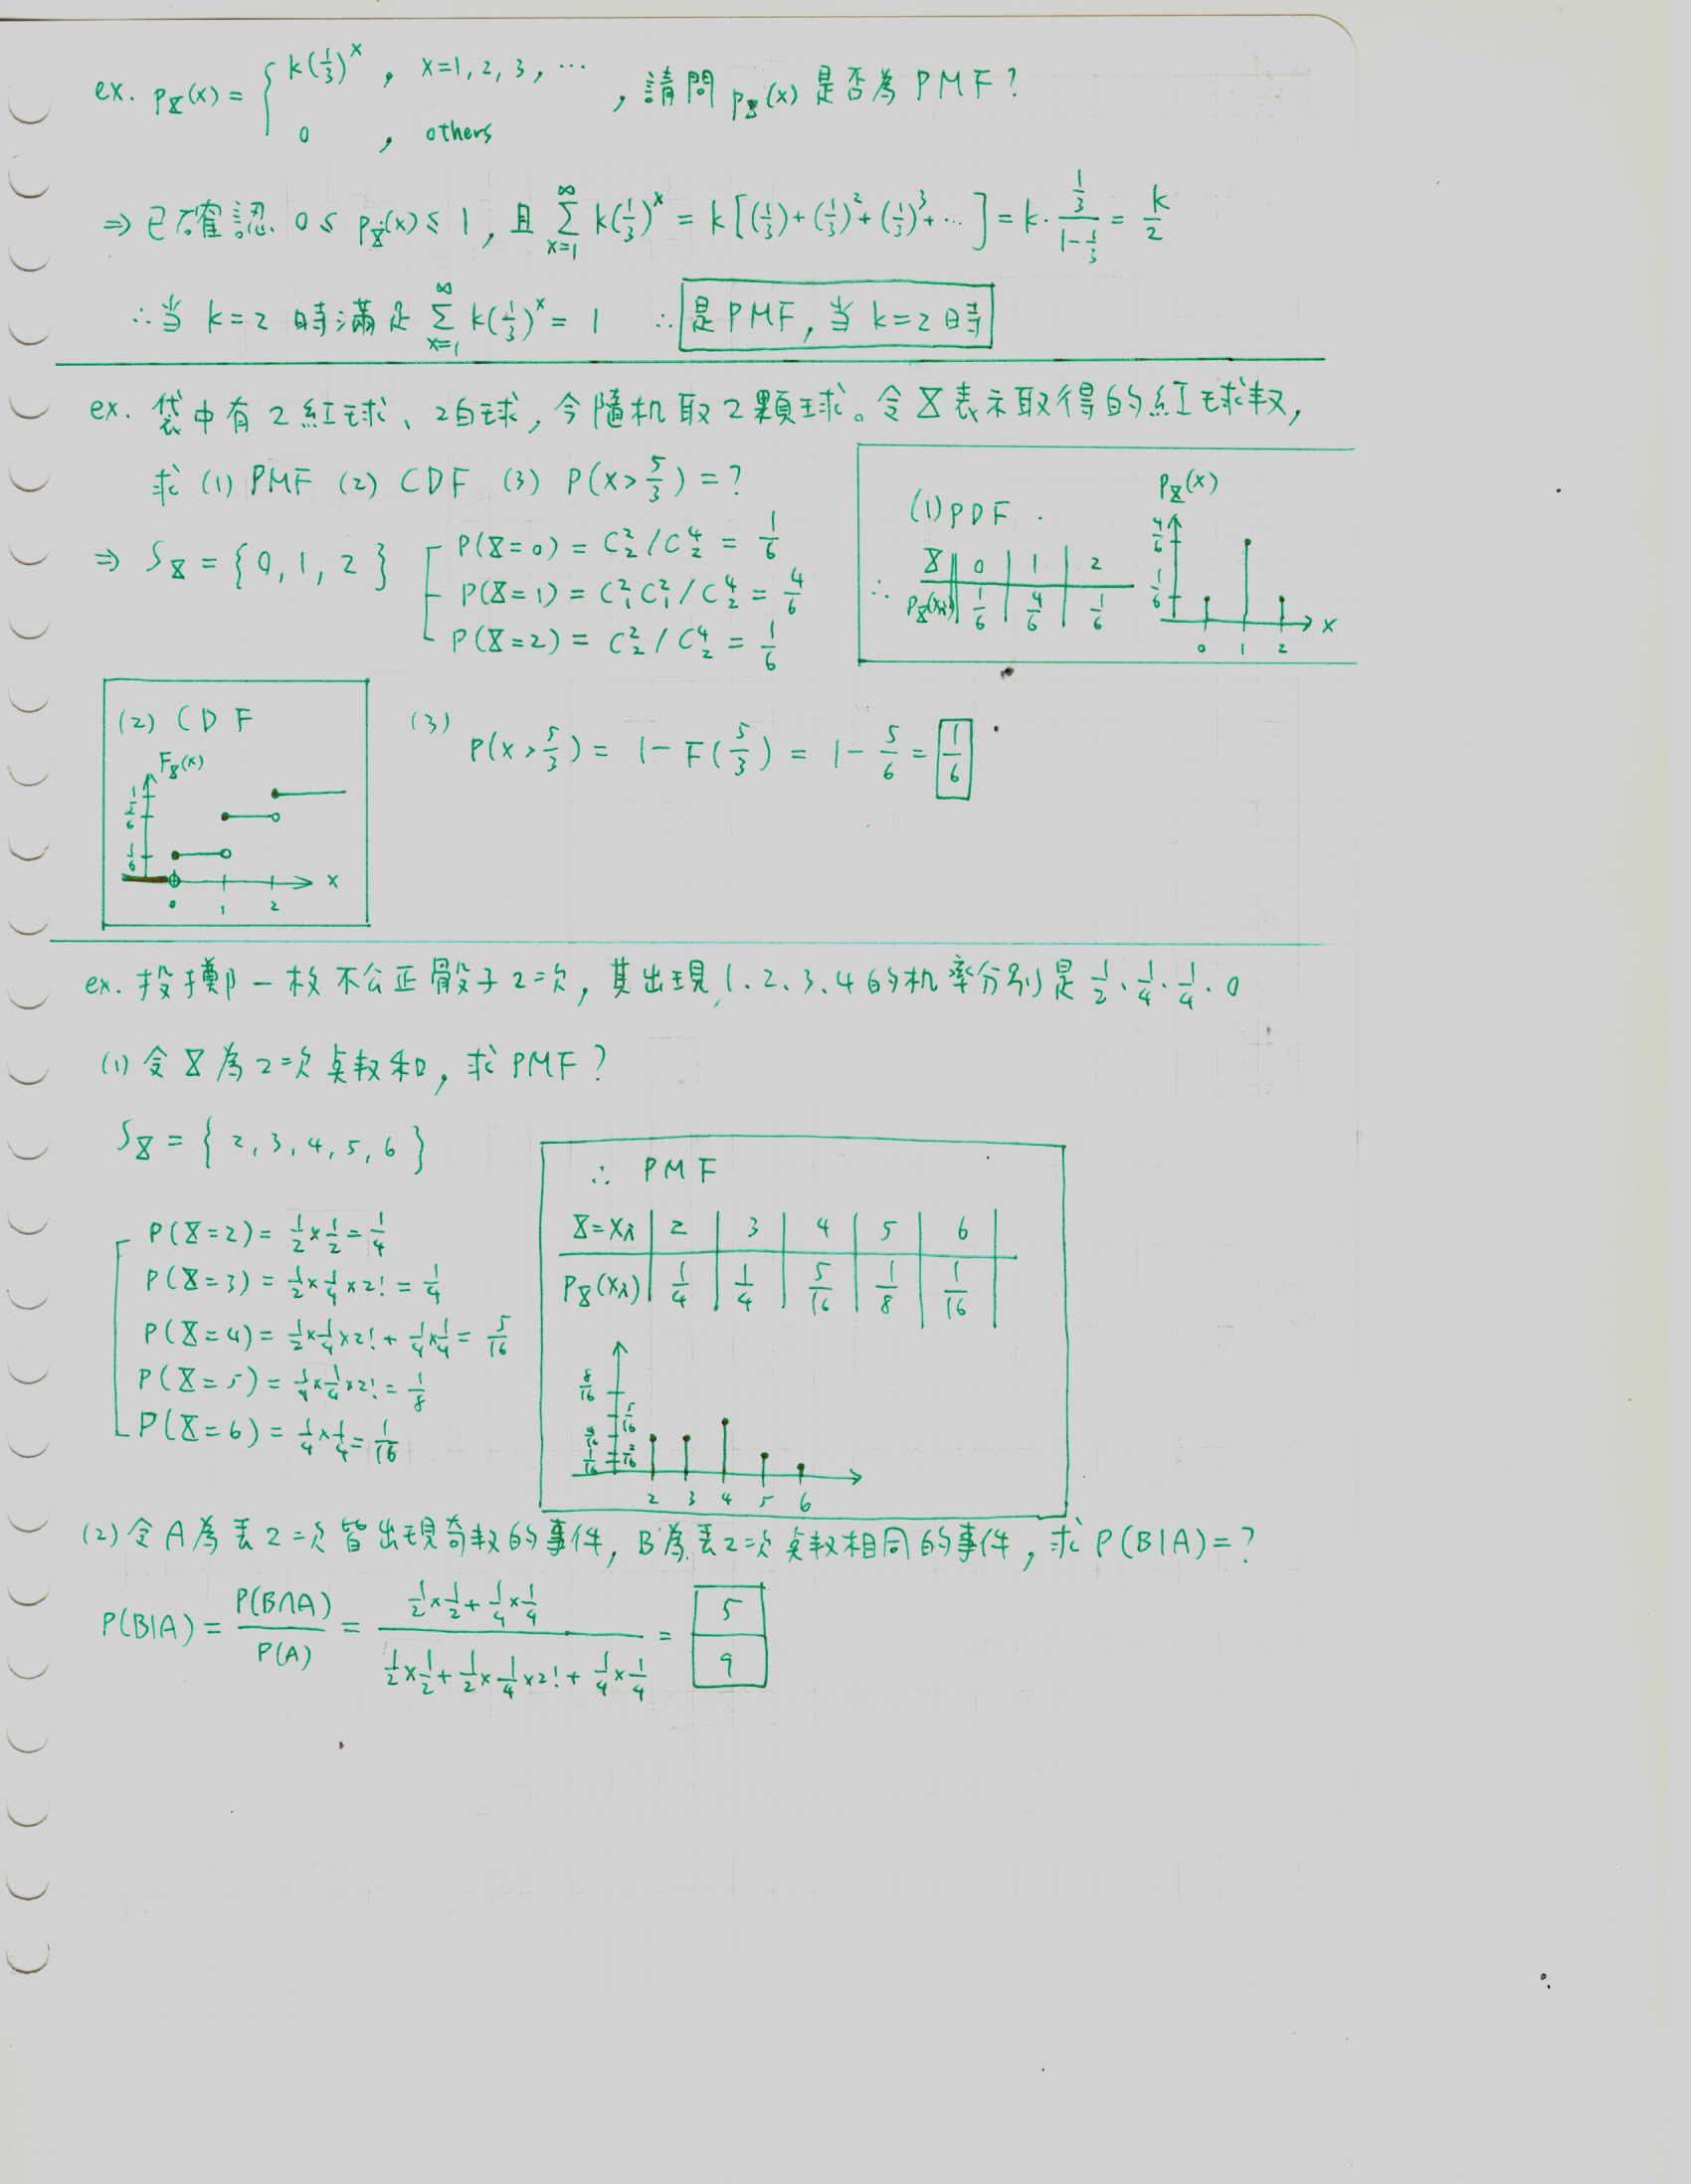 ex. p_X(x) = { k(1/3)^x , x=1, 2, 3, ⋯
0 , others
, 請問 p_X(x) 是否為 PMF?
⇒ 已確認 0 ≤ p_X(x) ≤ 1, 且 ∑_{x=1}^{∞} k(1/3)^x = k[(1/3)+(1/3)^2+(1/3)^3+⋯] = k·(1/3)/(1-1/3) = k/2
∴当 k=2 時滿足 ∑_{x=1}^{∞} k(1/3)^x = 1 ∴ 是PMF, 当 k=2 時
ex. 袋中有 2 紅球、2白球, 今隨机取 2 顆球。令 X 表示取得的紅球数,
求 (1) PMF (2) CDF (3) P(x>5/3) = ?
⇒ S_X = {0, 1, 2}
P(X=0) = C^2_2 / C^4_2 = 1/6
P(X=1) = C^2_1 C^2_1 / C^4_2 = 4/6
P(X=2) = C^2_2 / C^4_2 = 1/6
∴ (1) PDF
X 0 1 2
p_X(x_i) 1/6 4/6 1/6
p_X(x)
4/6
1/6
0 1 2 x
(2) CDF
F_X(x)
1
5/6
1/6
0 1 2 x
(3) P(x>5/3) = 1 - F(5/3) = 1 - 5/6 = 1/6
ex. 投擲一枚不公正骰子 2次, 其出現 1、2、3、4 的机率分別是 1/2、1/4、1/4、0
(1) 令 X 為 2次点数和, 求 PMF?
S_X = { 2, 3, 4, 5, 6 }
P(X=2) = 1/2 × 1/2 = 1/4
P(X=3) = 1/2 × 1/4 × 2! = 1/4
P(X=4) = 1/2 × 1/4 × 2! + 1/4 × 1/4 = 5/16
P(X=5) = 1/4 × 1/4 × 2! = 1/8
P(X=6) = 1/4 × 1/4 = 1/16
∴ PMF
X=x_i 2 3 4 5 6
p_X(x_i) 1/4 1/4 5/16 1/8 1/16
8/16
5/16
4/16
2/16
1/16
2 3 4 5 6
(2) 令 A 為丟 2次皆出現奇数的事件, B為丟2次点数相同的事件, 求 P(B|A) = ?
P(B|A) = P(B∩A)/P(A) = (1/2×1/2 + 1/4×1/4)/(1/2×1/2 + 1/2×1/4×2! + 1/4×1/4) = 5/9